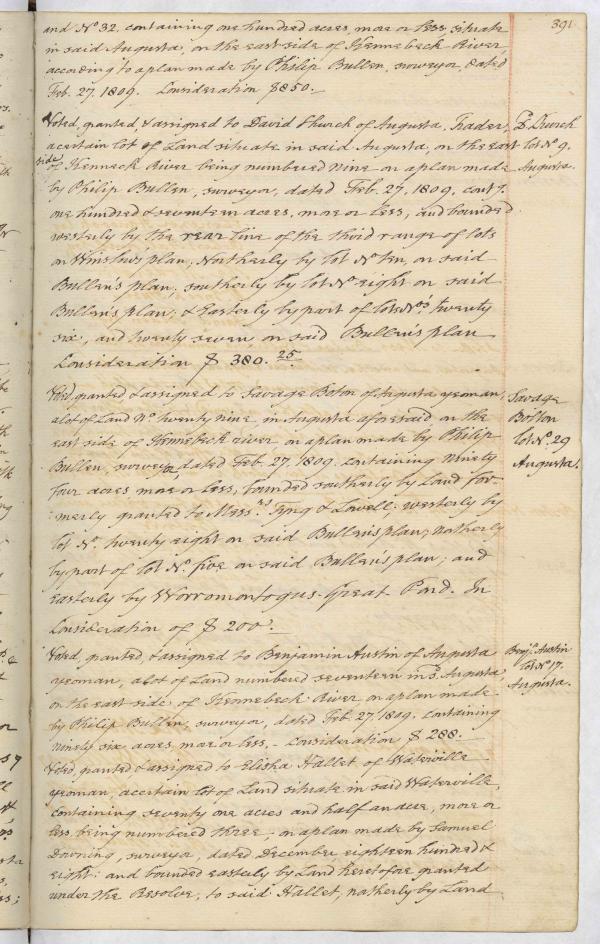 391
and No 32, containing one hundred acres, more or less situate
in said Augusta, on the east side of Kennebeck River,
according to a plan made by Philip Bullen, surveyor, dated
Feb. 27. 1809. Consideration $850.—
Voted, granted, & assigned to David Church of Augusta, Trader,
a certain lot of Land situate in said Augusta, on the east
side of Kenneck River being numbered nine on a plan made
by Philip Bullen, surveyor, dated Feb. 27, 1809, contg.
one hundred & seventeen acres, more or less, and bounded
westerly by the rear line of the third range of lots
on Winslow's plan; Northerly by lot No ten, on said
Bullen's plan; southerly by lot No eight on said
Bullen's plan; & Easterly by part of lots Nos twenty
six, and twenty seven on said Bullen's plan
Consideration $ 380. 25.
D. Church
lot No 9.
Augusta.
Voted, granted & assigned to Savage Bolton of Augusta yeoman,
a lot of Land No. twenty nine, in Augusta aforesaid on the
east side of Kennebeck river on a plan made by Philip
Bullen, surveyor, dated Feb. 27. 1809. containing Ninety
four acres more or less, bounded southerly by Land for-
merly granted to Messrs Tyng & Lowell; westerly by
lot No. twenty eight on said Bullen's plan; notherly
by part of lot No. five on said Bullen's plan; and
easterly by Worromontogus Great Pond. In
Consideration of $ 200.
Savage
Bolton
lot No. 29
Augusta.
Voted, granted, & assigned to Benjamin Austin of Augusta
yeoman, a lot of Land numbered seventeen in sd. Augusta
on the east side of Kennebeck River on a plan made
by Philip Bullen, surveyor, dated Feb. 27. 1809. containing
Ninety six acres more or less,— Consideration $ 288.—
Benja. Austin
lot No 17.
Augusta.
Voted, granted & assigned to Elisha Hallet of Waterville
yeoman, a certain lot of Land situate in said Waterville,
containing seventy one acres and half an acre, more or
less, being numbered three, on a plan made by Samuel
Downing, surveyor, dated December eighteen hundred &
eight: and bounded easterly by Land heretofore granted
under the Resolve, to said Hallet, notherly by Land